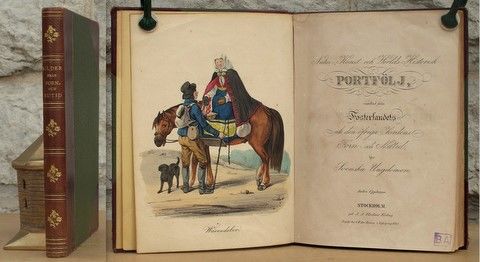 BILDER
FRÅN
FORN-
OCH
NUTID
Wärendsbor.
Natur-, Konst- och Verlds-Historisk
PORTFÖLJ,
samlad från
Fosterlandets
och den öfriga Verldens
Forn- och Nutid,
för
Svenska Ungdomen.
Andra Upplagan
STOCKHOLM,